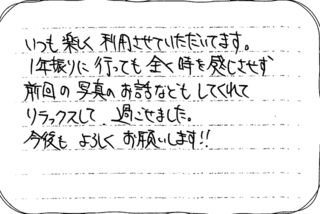 いつも楽しく利用させていただいてます。
1年振りに行っても全く時を感じさせず
前回の写真のお話などもしてくれて
リラックスして過ごせました。
今後もよろしくお願いします!!